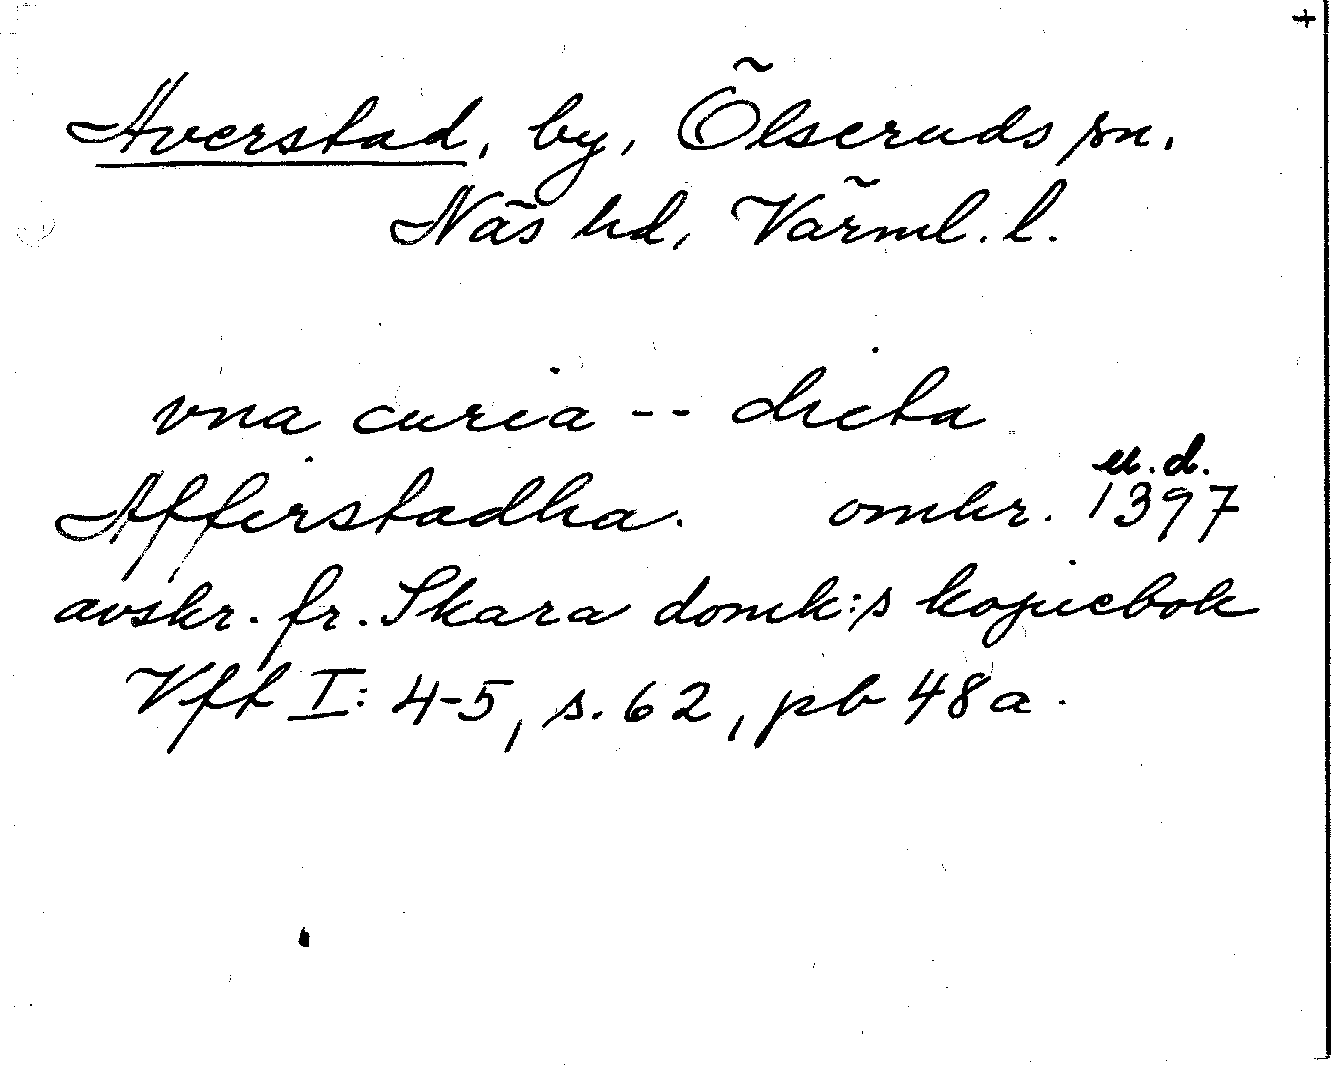 +
Averstad, by, Ölseruds sn.
Näs hd, Värml. l.
vna curia -- dicta
u.d.
Affirstadha. omkr. 1397
avskr. fr. Skara domk:s kopiebok
Vft I: 4-5, s. 62, pb 48a.